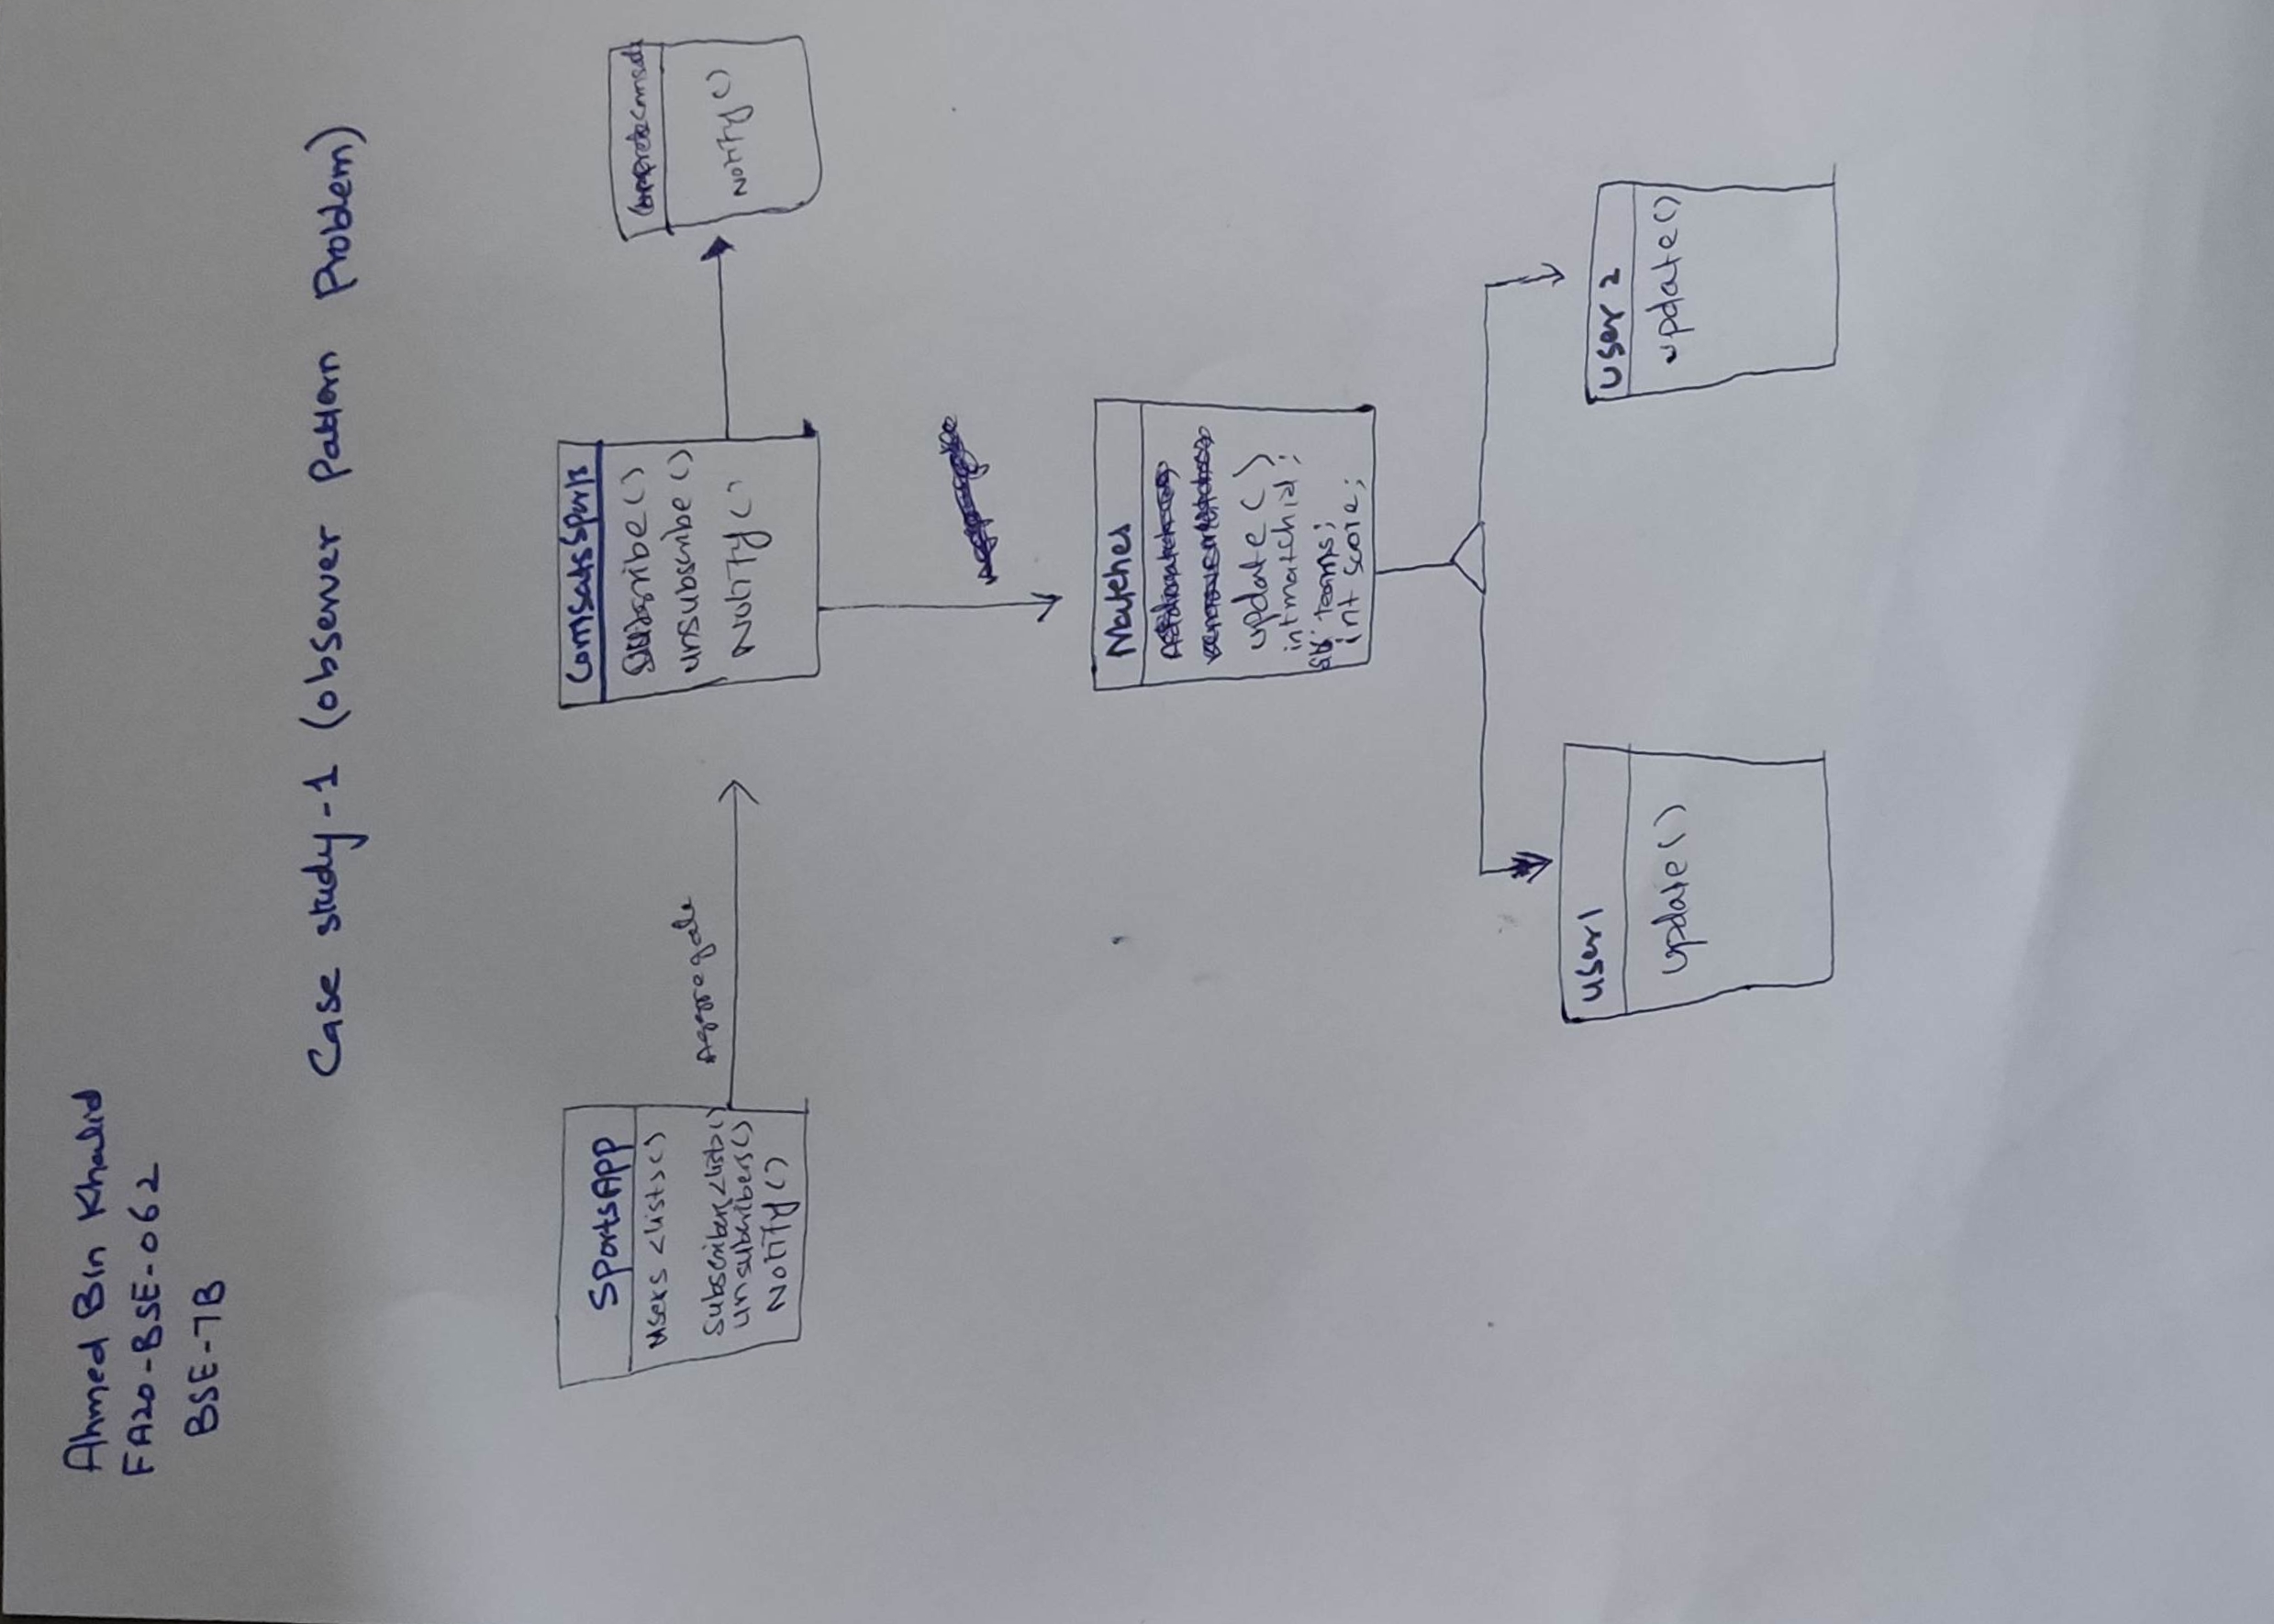 Ahmed Bin Khalid
FA20-BSE-062
BSE-7B
Case study-1 (observer Pattern Problem)
SportsApp
users <list>()
Subscribers <list>()
unsubcribers()
Notify()
Aggregate
ComsatsSports
Subscribe()
unsubscribe()
Notify()
Notify()
Matches
update()
int match id;
teams;
int score;
user1
update()
user 2
update()